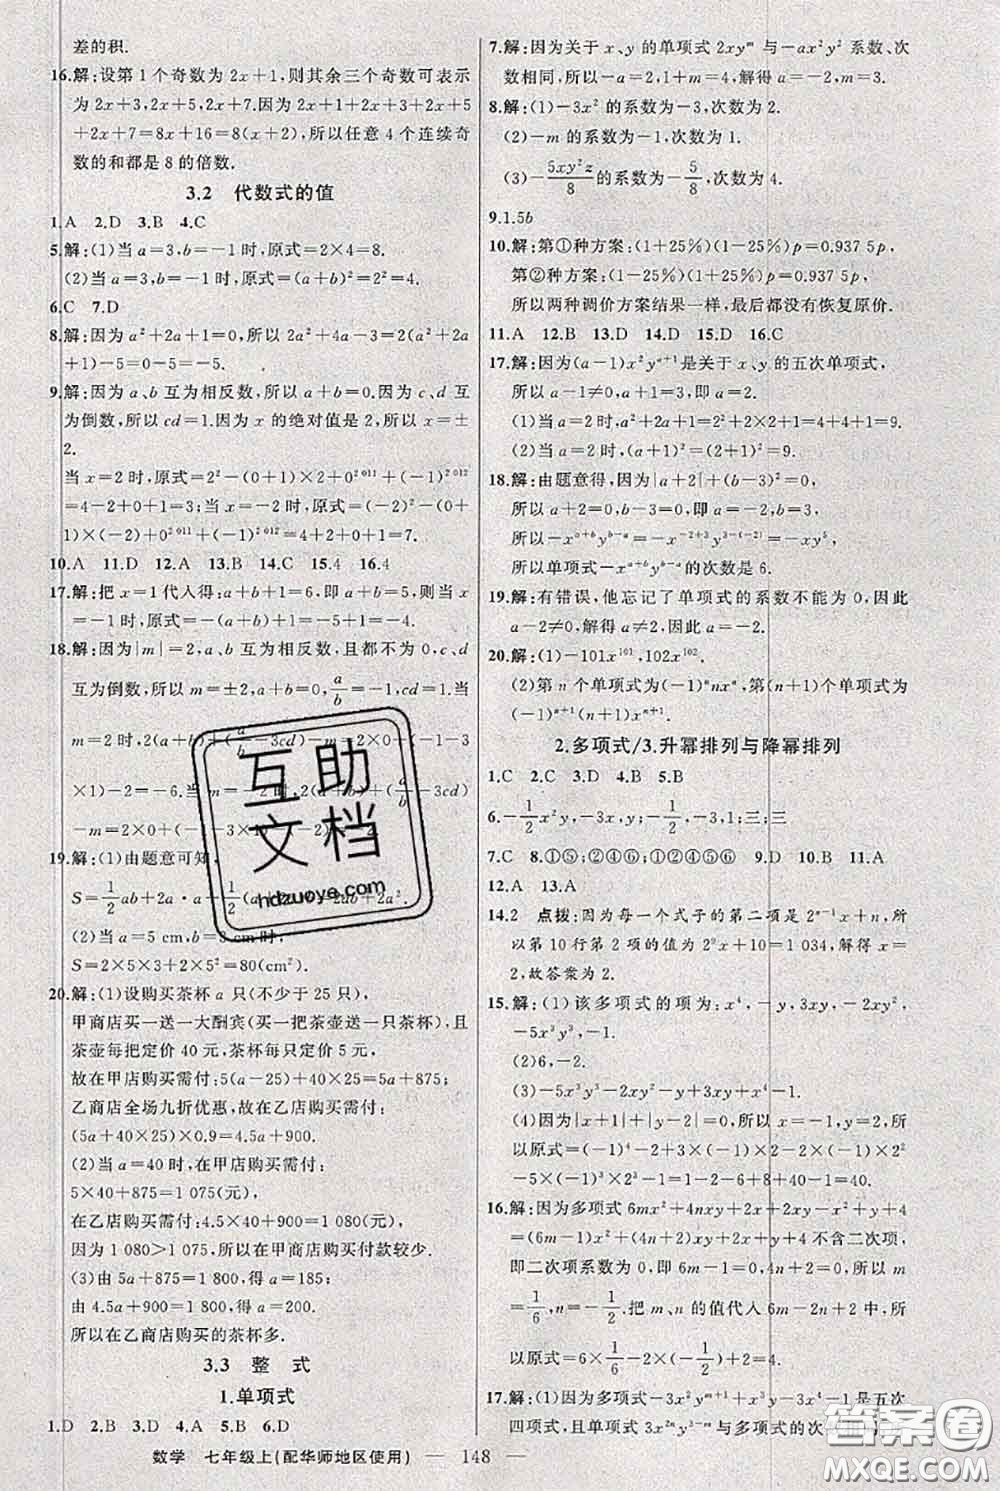 差的积.
16.解:设第 1 个奇数为 2x+1,则其余三个奇数可表示
为 2x+3,2x+5,2x+7.因为 2x+1+2x+3+2x+5
+2x+7=8x+16=8(x+2),所以任意 4 个连续奇
数的和都是 8 的倍数.
3.2 代数式的值
1.A 2.D 3.B 4.C
5.解:(1)当 a=3,b=-1 时,原式=2×4=8.
(2)当 a=3,b=-1 时,原式=2²=4.
6.C 7.D
8.解:因为 a²+2a+1=0,所以 2a²+4a-3=2(a²+2a
+1)-5=0-5=-5.
9.解:因为 a、b 互为相反数,所以 a+b=0.因为 c、d 互
为倒数,所以 cd=1.因为 x 的绝对值是 2,所以 x=±
2.
当 x=2 时,原式=2²-(0+1)×2+0²⁰¹¹+(-1)²⁰¹²
=4-2+0+1=3;当 x=-2 时,原式=(-2)²-(0+
1)×(-2)+0²⁰¹¹+(-1)²⁰¹²=4+2+0+1=7.
10.A 11.D 12.A 13.B 14.C 15.4 16.4
17.解:把 x=1 代入得:a+b+1=6,即 a+b=5,当 x
=-1 时,原式=-(a+b)+1=-5+1=-4.
18.解:因为|m|=2,a、b 互为相反数,且都不为 0,c、d
互为倒数,所以 m=±2,a+b=0,a/b=-1,cd=1.当
m=2 时,2(a+b)+(a/b-3cd)-m=2×0+(-1-3
×1)-2=-6.当 m=-2 时,2(a+b)+(a/b-3cd)
-m=2×0+(-1-3×1)
19.解:(1)由题意可知,
S=1/2ab+2a·a+1/2
ab+2a².
(2)当 a=5 cm,b=3 时,
S=2×5×3+2×5²=80(cm²).
20.解:(1)设购买茶杯 a 只(不少于 25 只),
甲商店买一送一大酬宾(买一把茶壶送茶杯一只),且
茶壶每把定价 40 元,茶杯每只定价 5 元,
故在甲店购买需付:5(a-25)+40×25=5a+875;
乙商店全场九折优惠,故在乙店购买需付:
(5a+40×25)×0.9=4.5a+900.
(2)当 a=40 时,在甲店购买需付:
5×40+875=1 075(元),
在乙店购买需付:4.5×40+900=1 080(元),
因为 1 080>1 075,所以在甲商店购买付款较少.
(3)由 5a+875=1 800,得 a=185;
由 4.5a+900=1 800,得 a=200.
所以在乙商店购买的茶杯多.
3.3 整 式
1.单项式
1.D 2.B 3.D 4.A 5.B 6.D
7.解:因为关于 x、y 的单项式 2xyᵐ 与-ax²y² 系数、次
数相同,所以-a=2,1+m=4,解得 a=-2,m=3.
8.解:(1)-3x² 的系数为-3,次数为 2.
(2)-m 的系数为-1,次数为 1.
(3)-5xy²z/8 的系数为-5/8,次数为 4.
9.1.5b
10.解:第①种方案:(1+25%)(1-25%)p=0.937 5p,
第②种方案:(1-25%)(1+25%)p=0.937 5p,
所以两种调价方案结果一样,最后都没有恢复原价.
11.A 12.B 13.D 14.D 15.D 16.C
17.解:因为(a-1)x²yᵃ⁺¹是关于 x、y 的五次单项式,
所以 a-1≠0,a+1=3,即 a=2.
(1)当 a=2时,a²+2a+1=2²+2×2+1=9.
(2)当 a=2时,(a+1)²=(2+1)²=9.
18.解:由题意得,因为|a+2|+(b-3)²=0,
所以 a+2=0,b-3=0,即 a=-2,b=3,
所以-xᵃ⁺ᵇyᵇ⁻ᵃ=-x⁻²⁺³y³⁻⁽⁻²⁾=-xy⁵,
所以单项式-xᵃ⁺ᵇyᵇ⁻ᵃ的次数是 6.
19.解:有错误,他忘记了单项式的系数不能为 0,因此
a-2≠0,解得 a≠2,因此 a=-2.
20.解:(1)-101x¹⁰¹,102x¹⁰².
(2)第 n 个单项式为(-1)ⁿnxⁿ,第(n+1)个单项式为
(-1)ⁿ⁺¹(n+1)xⁿ⁺¹.
2.多项式/3.升幂排列与降幂排列
1.C 2.C 3.D 4.B 5.B
6.-1/2x²y,-3x,y,1;-1/2,-3,1,1;三;三
7.C 8.①⑤;②④⑥;①②④⑤⑥ 9.D 10.B 11.A
12.A 13.A
14.2 点拨:因为每一个式子的第二项是 2ⁿ⁻¹x+n,所
以第 10 行第 2 项的值为 2⁹x+10=1 034,解得 x=
2,故答案为 2.
15.解:(1)该多项式的项为:x⁴,-y,3xy,-2xy²,
-5x³y³,-1.
(2)6,-2.
(3)-5x³y³-2xy²-y+3xy+x⁴-1.
(4)因为|x+1|+|y-2|=0,所以 x=-1,y=2,所
以原式=(-1)⁴-2+3×(-1)×2-2×(-1)×2²
-5×(-1)³×2³-1=1-2-6+8+40-1=40.
16.解:因为多项式 6mx²+4nxy+2x+2xy-x²+y+4
=(6m-1)x²+(4n+2)xy+2x+y+4 不含二次项,
即二次项系数为 0,即 6m-1=0,4n+2=0,所以 m=
1/6,n=-1/2,把 m、n 的值代入 6m-2n+2 中,所
以原式=6×1/6-2×(-1/2)+2=4.
17.解:(1)因为多项式-3x²yᵐ⁺¹+x³y-3x⁴-1 是五次
四项式,且单项式 3x²ⁿy³⁻ᵐ与多项式的次
数学 七年级上(配华师地区使用) — 148 —
互助
文档
hdzuoye.com
答案圈
MXQE.COM